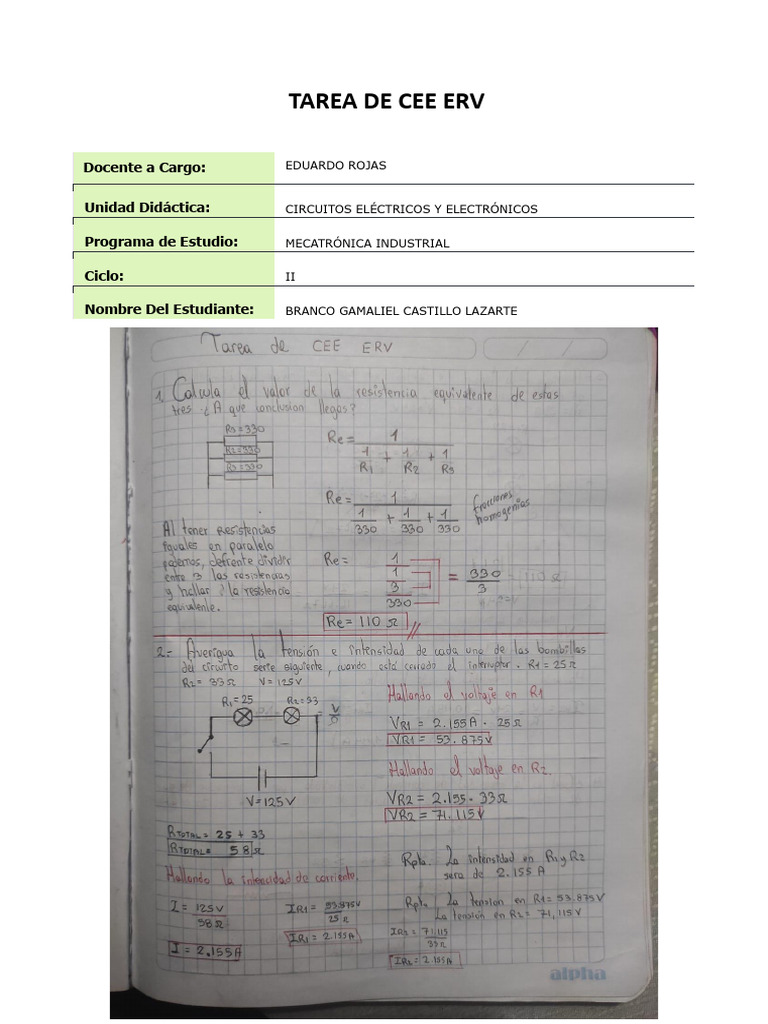 TAREA DE CEE ERV
Docente a Cargo: EDUARDO ROJAS
Unidad Didáctica: CIRCUITOS ELÉCTRICOS Y ELECTRÓNICOS
Programa de Estudio: MECATRÓNICA INDUSTRIAL
Ciclo: II
Nombre Del Estudiante: BRANCO GAMALIEL CASTILLO LAZARTE
Tarea de CEE ERV
1. Calcula el valor de la resistencia equivalente de estas
tres ¿A que conclusion llegas?
R3=330
R2=330
R3=330
Re= 1
1/R1 + 1/R2 + 1/R3
Re= 1
1/330 + 1/330 + 1/330
fracciones
homogenias
Al tener resistencias
iguales en paralelo
podemos, defrente dividir
entre 3 las resistencias
y hallar la resistencia
equivalente.
Re= 1
1
3
330
= 330/3
110 Ω
Re= 110 Ω
2.- Averigua la tensión e intensidad de cada una de las bombillas
del circuito serie siguiente, cuando está cerrado el interruptor. R1=25Ω
R2= 33Ω V=125V
R1=25 R2=33
V=125V
Hallando el voltaje en R1
VR1 = 2.155A · 25Ω
VR1 = 53.875V
Hallando el voltaje en R2
VR2 = 2.155 · 33Ω
VR2 = 71.115V
RTOTAL= 25 + 33
RTOTAL= 58Ω
Hallando la intencidad de corriente.
I = 125V/58Ω
I = 2.155A
IR1= 53.875V/25Ω
IR1= 2.155A
Rpta. La intensidad en R1 y R2
sera de 2.155 A
Rpt. La tension en R1= 53.875V
La tension en R2= 71,115V
IR2= 71,115/33Ω
IR2= 2.155A
alpha